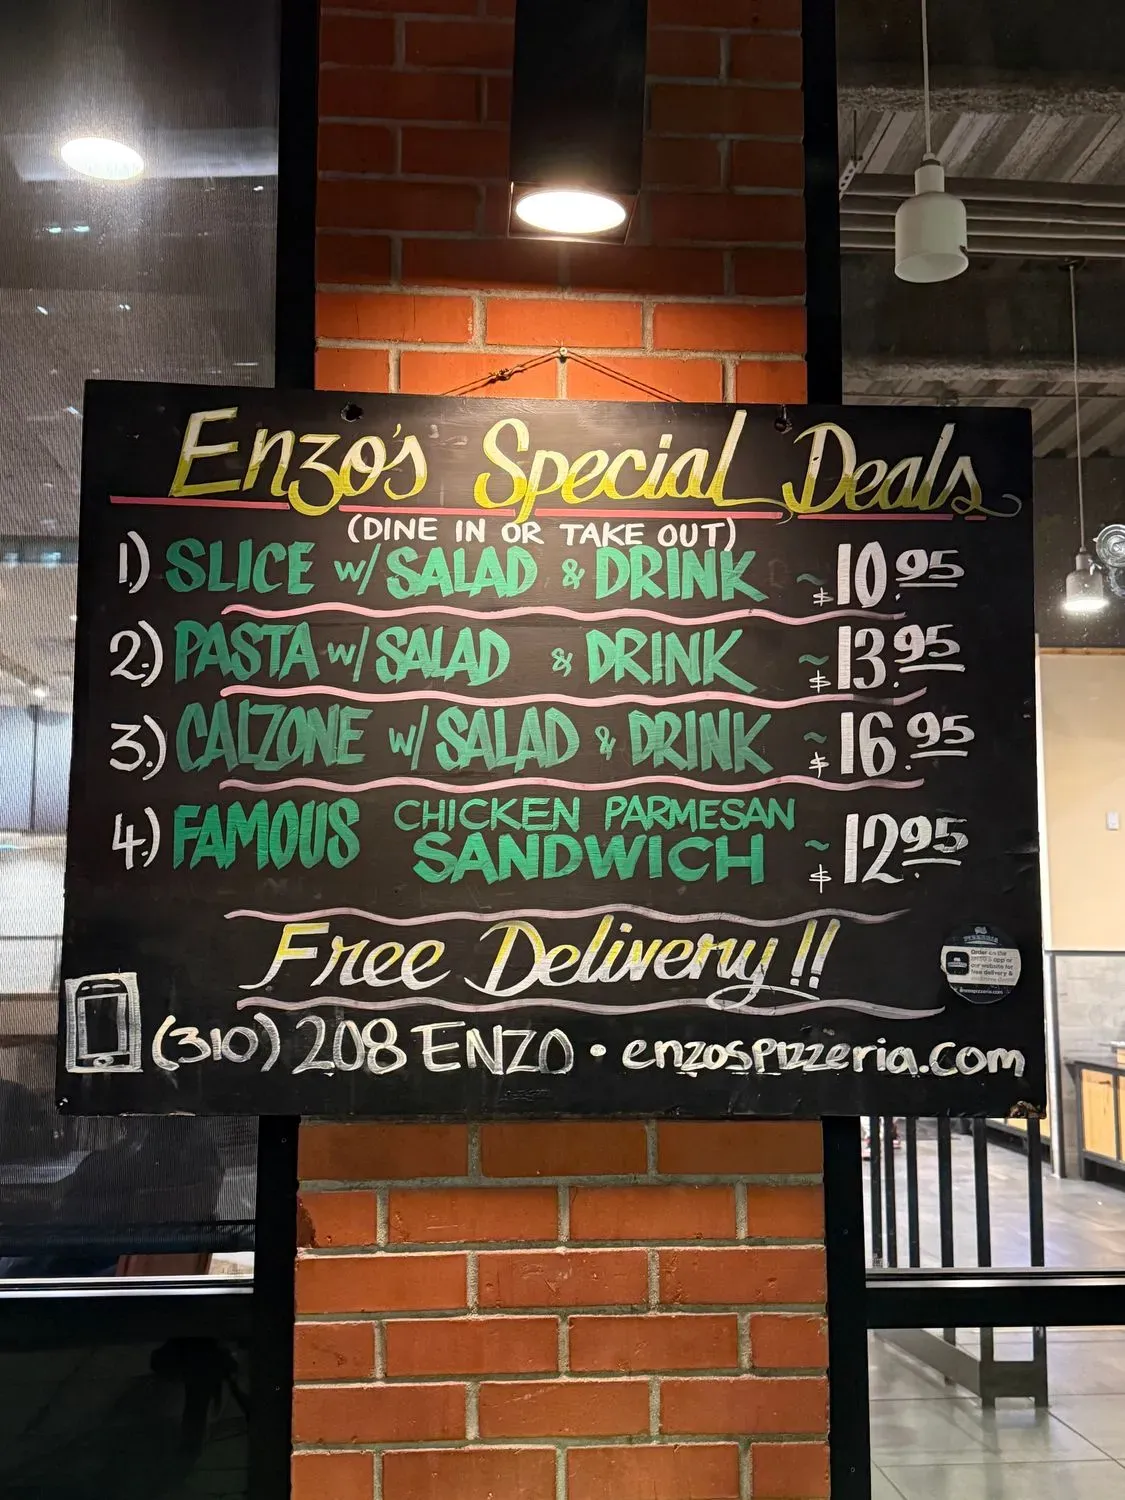 Enzo's Special Deals
(DINE IN OR TAKE OUT)
1.) SLICE w/ SALAD & DRINK ~ $10.95
2.) PASTA w/ SALAD & DRINK ~ $13.95
3.) CALZONE w/ SALAD & DRINK ~ $16.95
4.) FAMOUS CHICKEN PARMESAN SANDWICH ~ $12.95
Free Delivery!!
(310) 208 ENZO • enzospizzeria.com
PIZZERIA
Order on the
app or
our website for
free delivery &
enzospizzeria.com